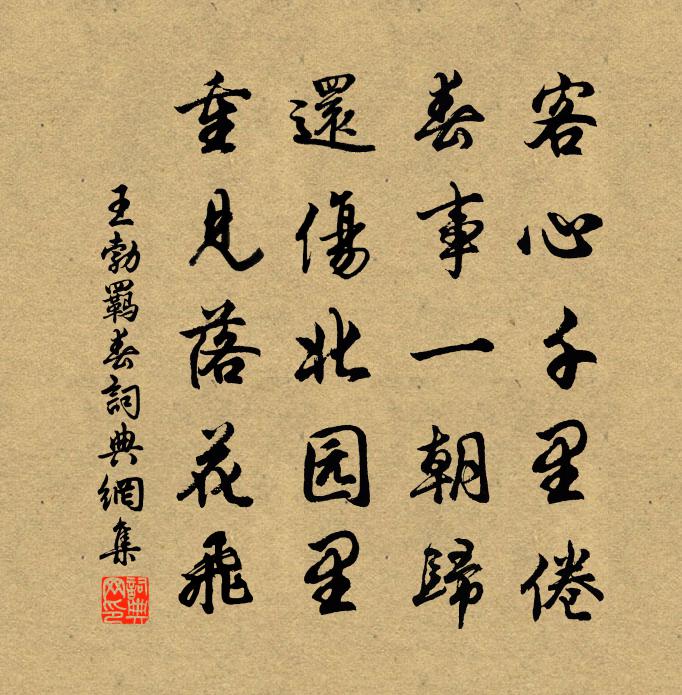 客心千里倦
春事一朝歸
還傷北园里
重見落花飛
王勃羈春詞典網集
詞典網印